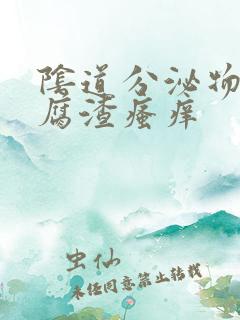 陰道分泌物
腐渣瘙痒
虫仙
未经同意禁止转载